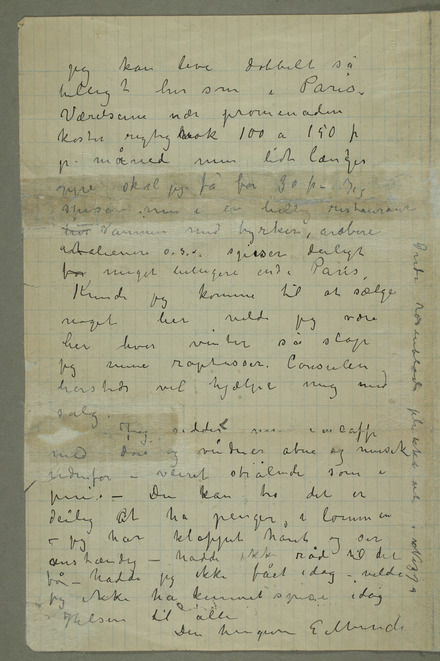 jeg kan leve dobbelt så
billigt her som i Paris.
Værelserne nær promenaden
koster rigtignok 100 a 150 f
pr. måned men lidt længer
oppe skal jeg få for 30 f – Jeg
spiser nu i en billig restaurant
sammen med tyrker, arabere
italienere o.s.v. spiser deiligt
for meget billigere end i Paris.
Kunde jeg komme til at sælge
noget her vilde jeg være
her hver vinter så slap
jeg mine Consulen
hersteds vil hjælpe mig med
salg.
Jeg sidder nu i en caffe
med døre og vinduer åbne og musik
udenfor – veiret strålende som i
juni. – Du kan tro det er
deilig at ha penger i lommen
– jeg har klippet håret og ser
anstændig – hadde ikke råd til det
før – hadde jeg ikke fået idag – vilde
jeg ikke ha kunnet spise idag
Hilsen til alle
Din hengivne E. Munch